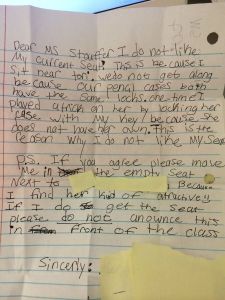 Dear MS. Stauffer I do not like
My current Seat. This is be cause I
Sit near tori. we do not get along
be cause our pencil cases both
have the same locks. one time I
played a trick on her by locking her
case with My key/ because she
does not have her own. This is the
reason why I do not like My Seat
P.S. If you agree please move
Me in the empty seat
Next to Because
I find her kid of attractivly
If I do get the seat
please do not anounce this
in front of the class
Sincerly: